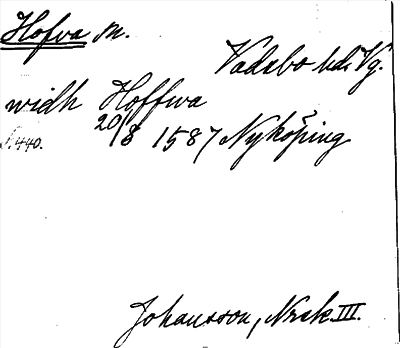 Hofva sn.
Vadsbo hd. Vg.
widh Hoffwa
20/8 1587 Nyköping
S. 440.
Johansson, Nrak III.